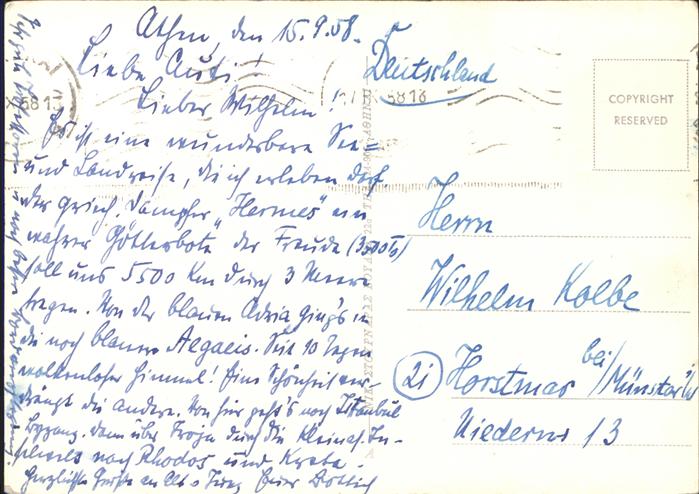 Athen, den 15.9.58.
Liebe
Lieber Wilhelm!
Es ist eine wunderbare See-
und Landreise, die ich erleben darf.
Der griech. Dampfer "Hermes" ein
wahrer Götterbote der Freude (3500 To)
soll uns 5500 km durch 3 Meere
tragen. Von der blauen Adria ging's in
die noch blauere Aegaeis. Seit 10 Tagen
wolkenloser Himmel! Eine Schönheit ver-
drängt die andere. Von hier geht's nach Istanbul
Byzanz, dann über Troja durch die kleinas. In-
selwelt nach Rhodos und Kreta.
Herzlichste Grüße an Alt u Jung Euer
Deutschland
COPYRIGHT
RESERVED
Herrn
Wilhelm Kolbe
(21) Horstmar bei/Münster i/W
Niedern 13